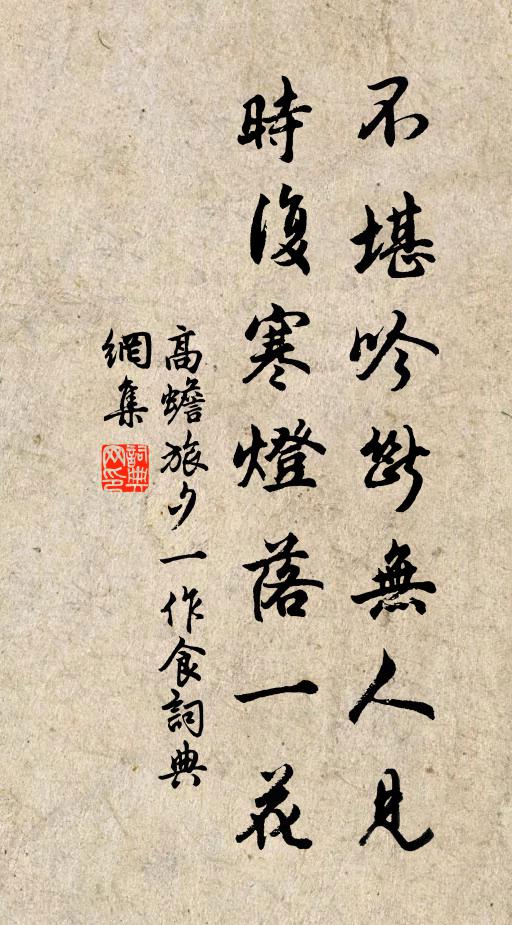 不堪吟斷無人見
時復寒燈落一花
高蟾旅夕一作食詞典
網集
詞典
网印